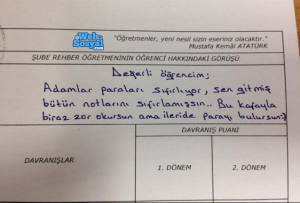 Web Sosyal
"Öğretmenler, yeni nesil sizin eseriniz olacaktır."
Mustafa Kemâl ATATÜRK
ŞUBE REHBER ÖĞRETMENİNİN ÖĞRENCİ HAKKINDAKİ GÖRÜŞÜ
Değerli öğrencim;
Adamlar paraları sıfırlıyor, sen gitmiş
bütün notlarını sıfırlamışsın.. Bu kafayla
biraz zor okursun ama ileride parayı bulursun:)
DAVRANIŞ PUANI
DAVRANIŞLAR
1. DÖNEM
2. DÖNEM